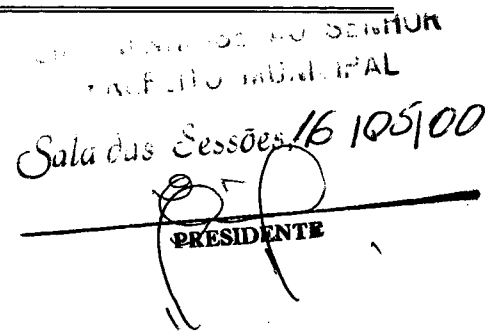 SENHOR
MUNICIPAL
Sala das Sessões, 16 / 05 / 00
PRESIDENTE